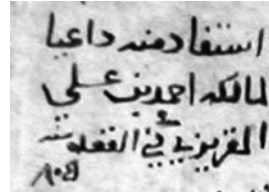 استفاد منه داعيا
لمالكه احمد بن علي
المقريزي في القعدة سنة
٨٠٤